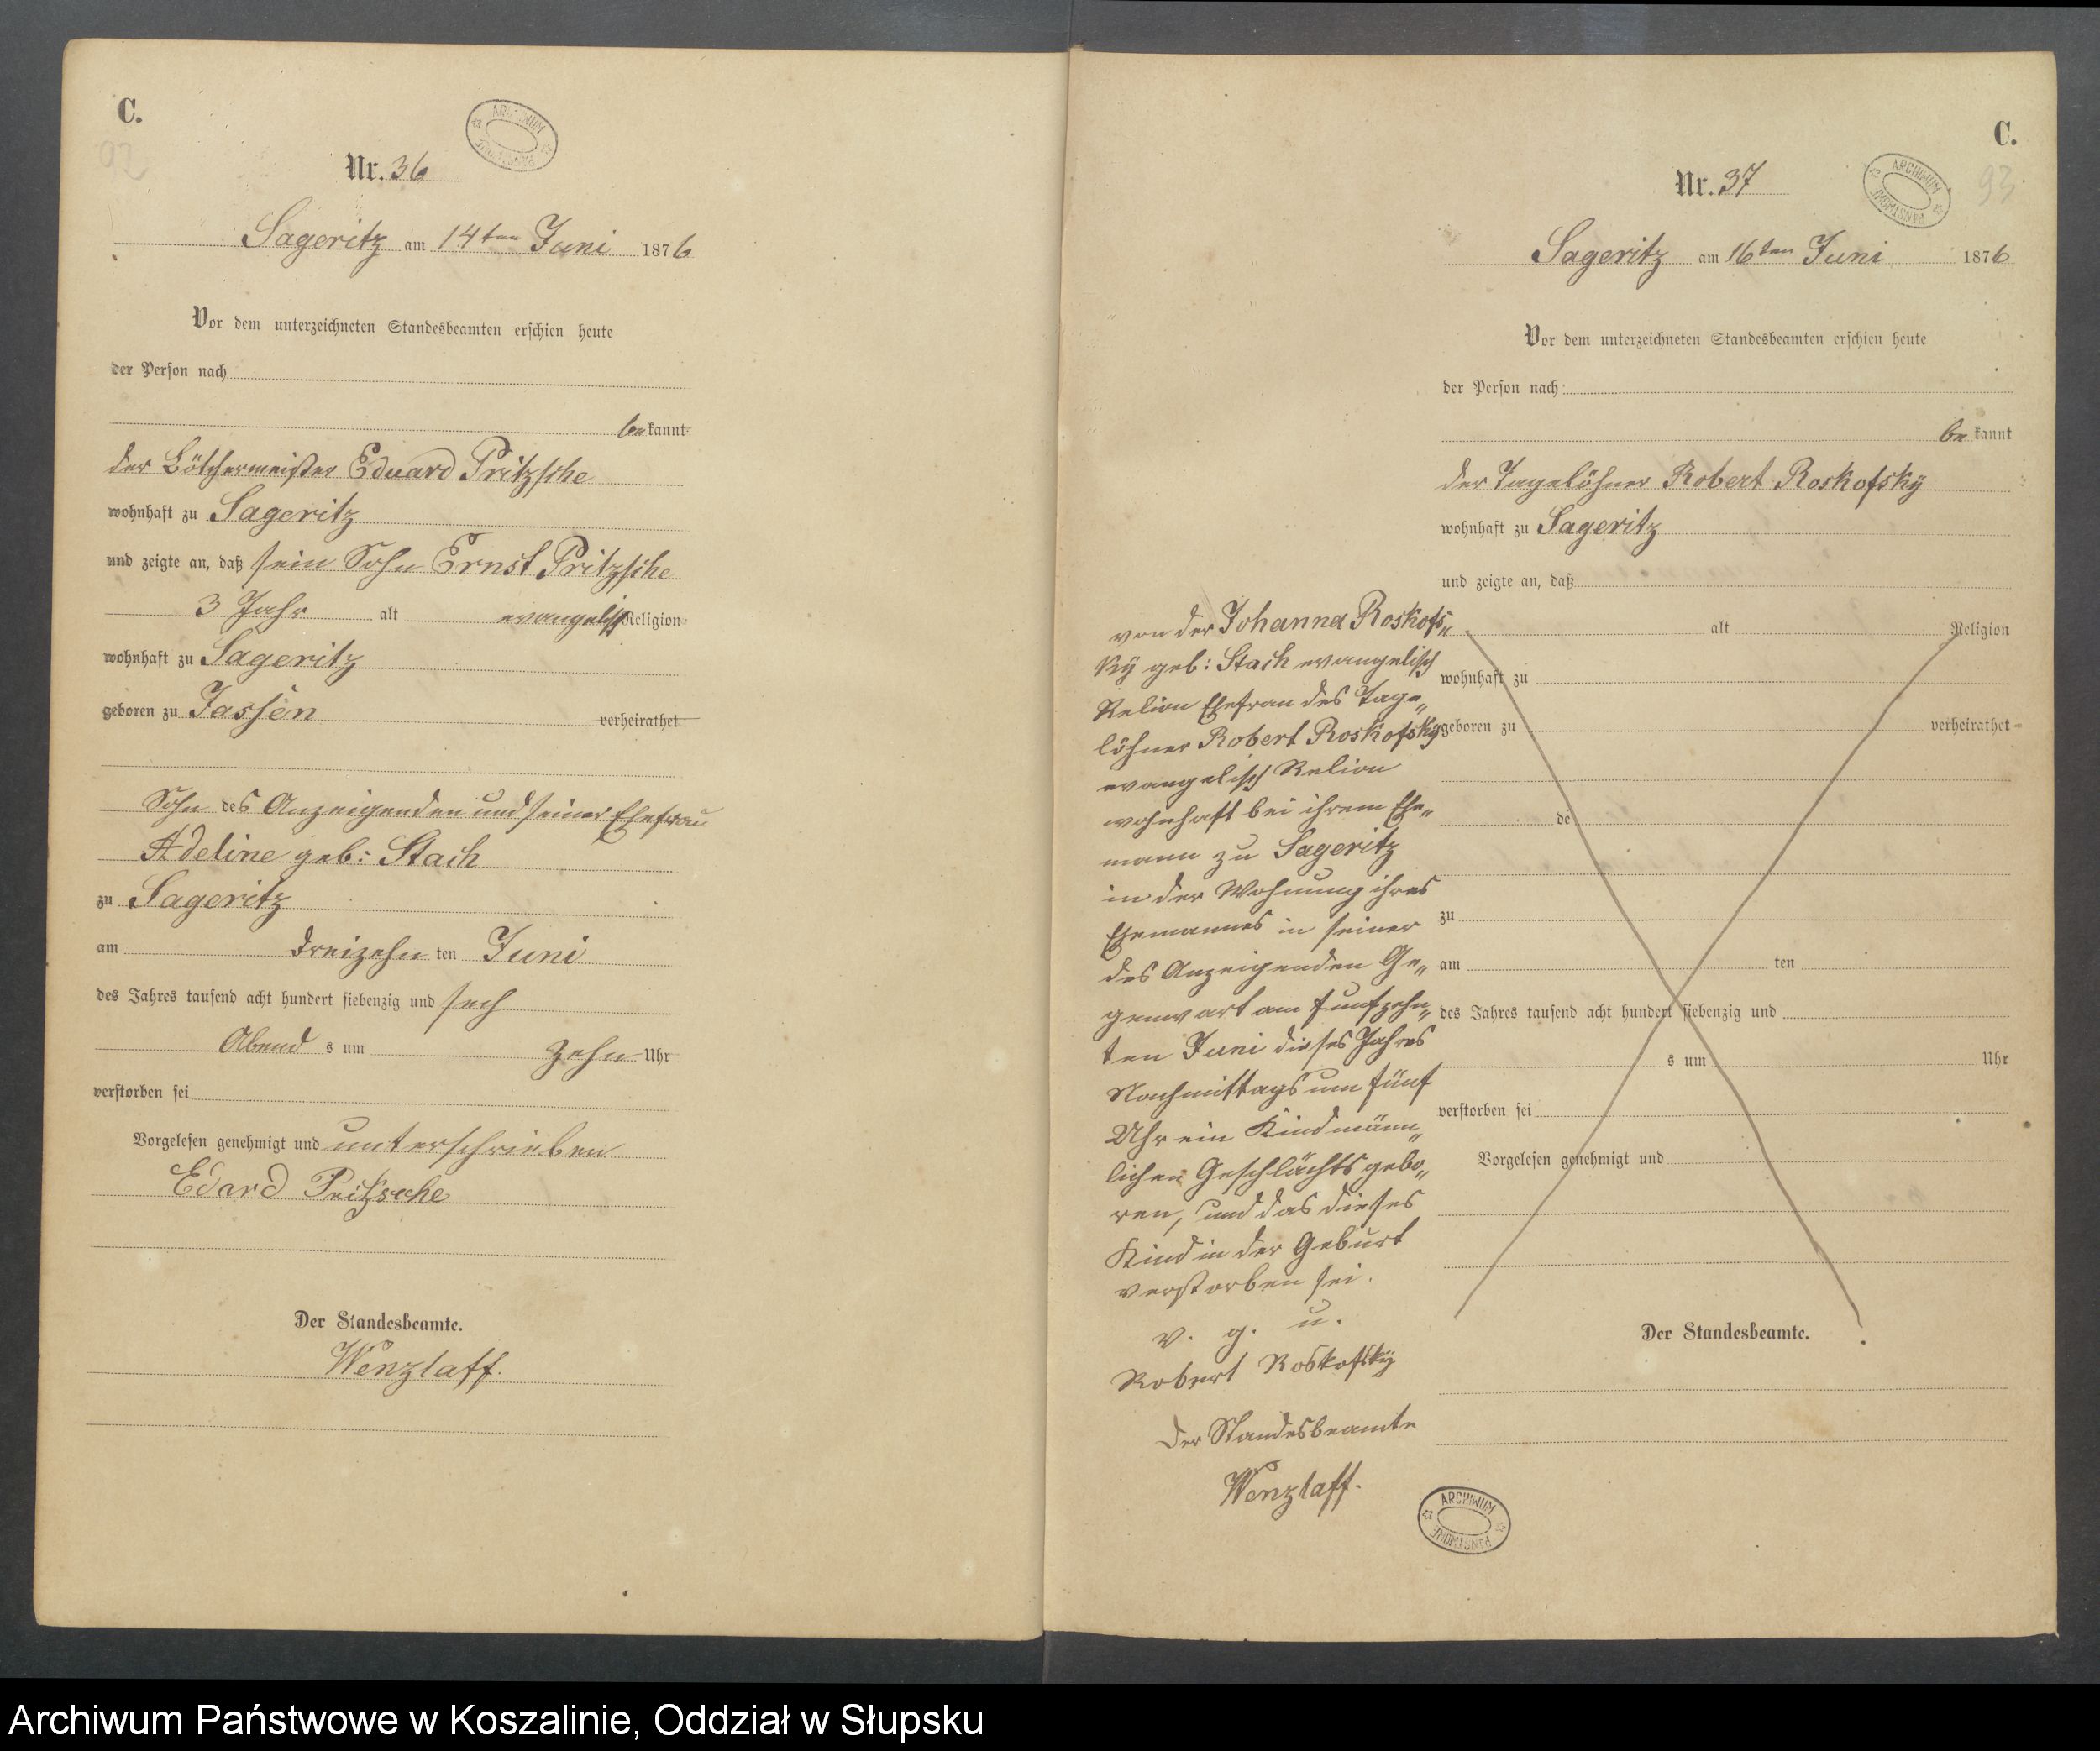 C.
92
ARCHIWUM PAŃSTWOWE
Nr. 36
Sageritz am 14ten Juni 1876
Vor dem unterzeichneten Standesbeamten erschien heute
der Person nach
bekannt
der Bötchermeister Eduard Pritzsche
wohnhaft zu Sageritz
und zeigte an, daß sein Sohn Ernst Pritzsche
3 Jahr alt evangelisch Religion
wohnhaft zu Sageritz
geboren zu Jassen verheirathet
Sohn des Anzeigenden und seiner Ehefrau
Adeline geb: Stach
zu Sageritz
am dreizehn ten Juni
des Jahres tausend acht hundert siebenzig und sech
Abend s um zehn Uhr
verstorben sei
Vorgelesen genehmigt und unterschrieben
Edard Pritzsche
Der Standesbeamte.
Wenzlaff.
C.
93
ARCHIWUM PAŃSTWOWE
Nr. 37
Sageritz am 16ten Juni 1876
Vor dem unterzeichneten Standesbeamten erschien heute
der Person nach
bekannt
der Tagelöhner Robert Roskofsky
wohnhaft zu Sageritz
und zeigte an, daß
alt Religion
wohnhaft zu
geboren zu verheirathet
de
zu
am ten
des Jahres tausend acht hundert siebenzig und
s um Uhr
verstorben sei
Vorgelesen genehmigt und
Der Standesbeamte.
von der Johanna Roskofs„
ky geb: Stach evangelisch
Relion Ehefrau des Tage„
löhner Robert Roskofsky
evangelisch Relion
wohnhaft bei ihrem Ehe„
mann zu Sageritz
in der Wohnung ihres
Ehemannes in seiner
des Anzeigenden Ge„
genwart am funfzehn„
ten Juni dieses Jahres
Nachmittags um fünf
Uhr ein Kind männ„
lichen Geschlächts gebo„
ren, und das dieses
Kind in der Geburt
verstorben sei.
v. g. u.
Robert Roskofsky
Der Standesbeamte
Wenzlaff.
ARCHIWUM PAŃSTWOWE
Archiwum Państwowe w Koszalinie, Oddział w Słupsku